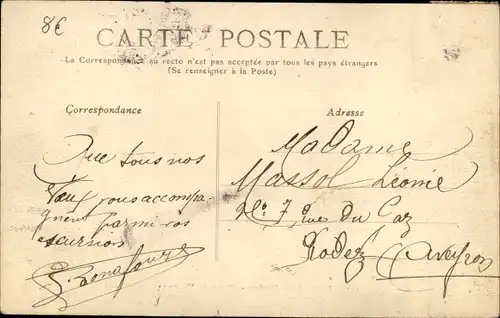 8€
CARTE POSTALE
La Correspondance au recto n'est pas acceptée par tous les pays étrangers
(Se renseigner à la Poste)
Correspondance
Adresse
Que tous nos
vœux vous accompa
gnent parmi vos
excursions
Bonafous
Madame
Massol Léonie
No 7 Rue du Gaz
Rodez
(Aveyron)